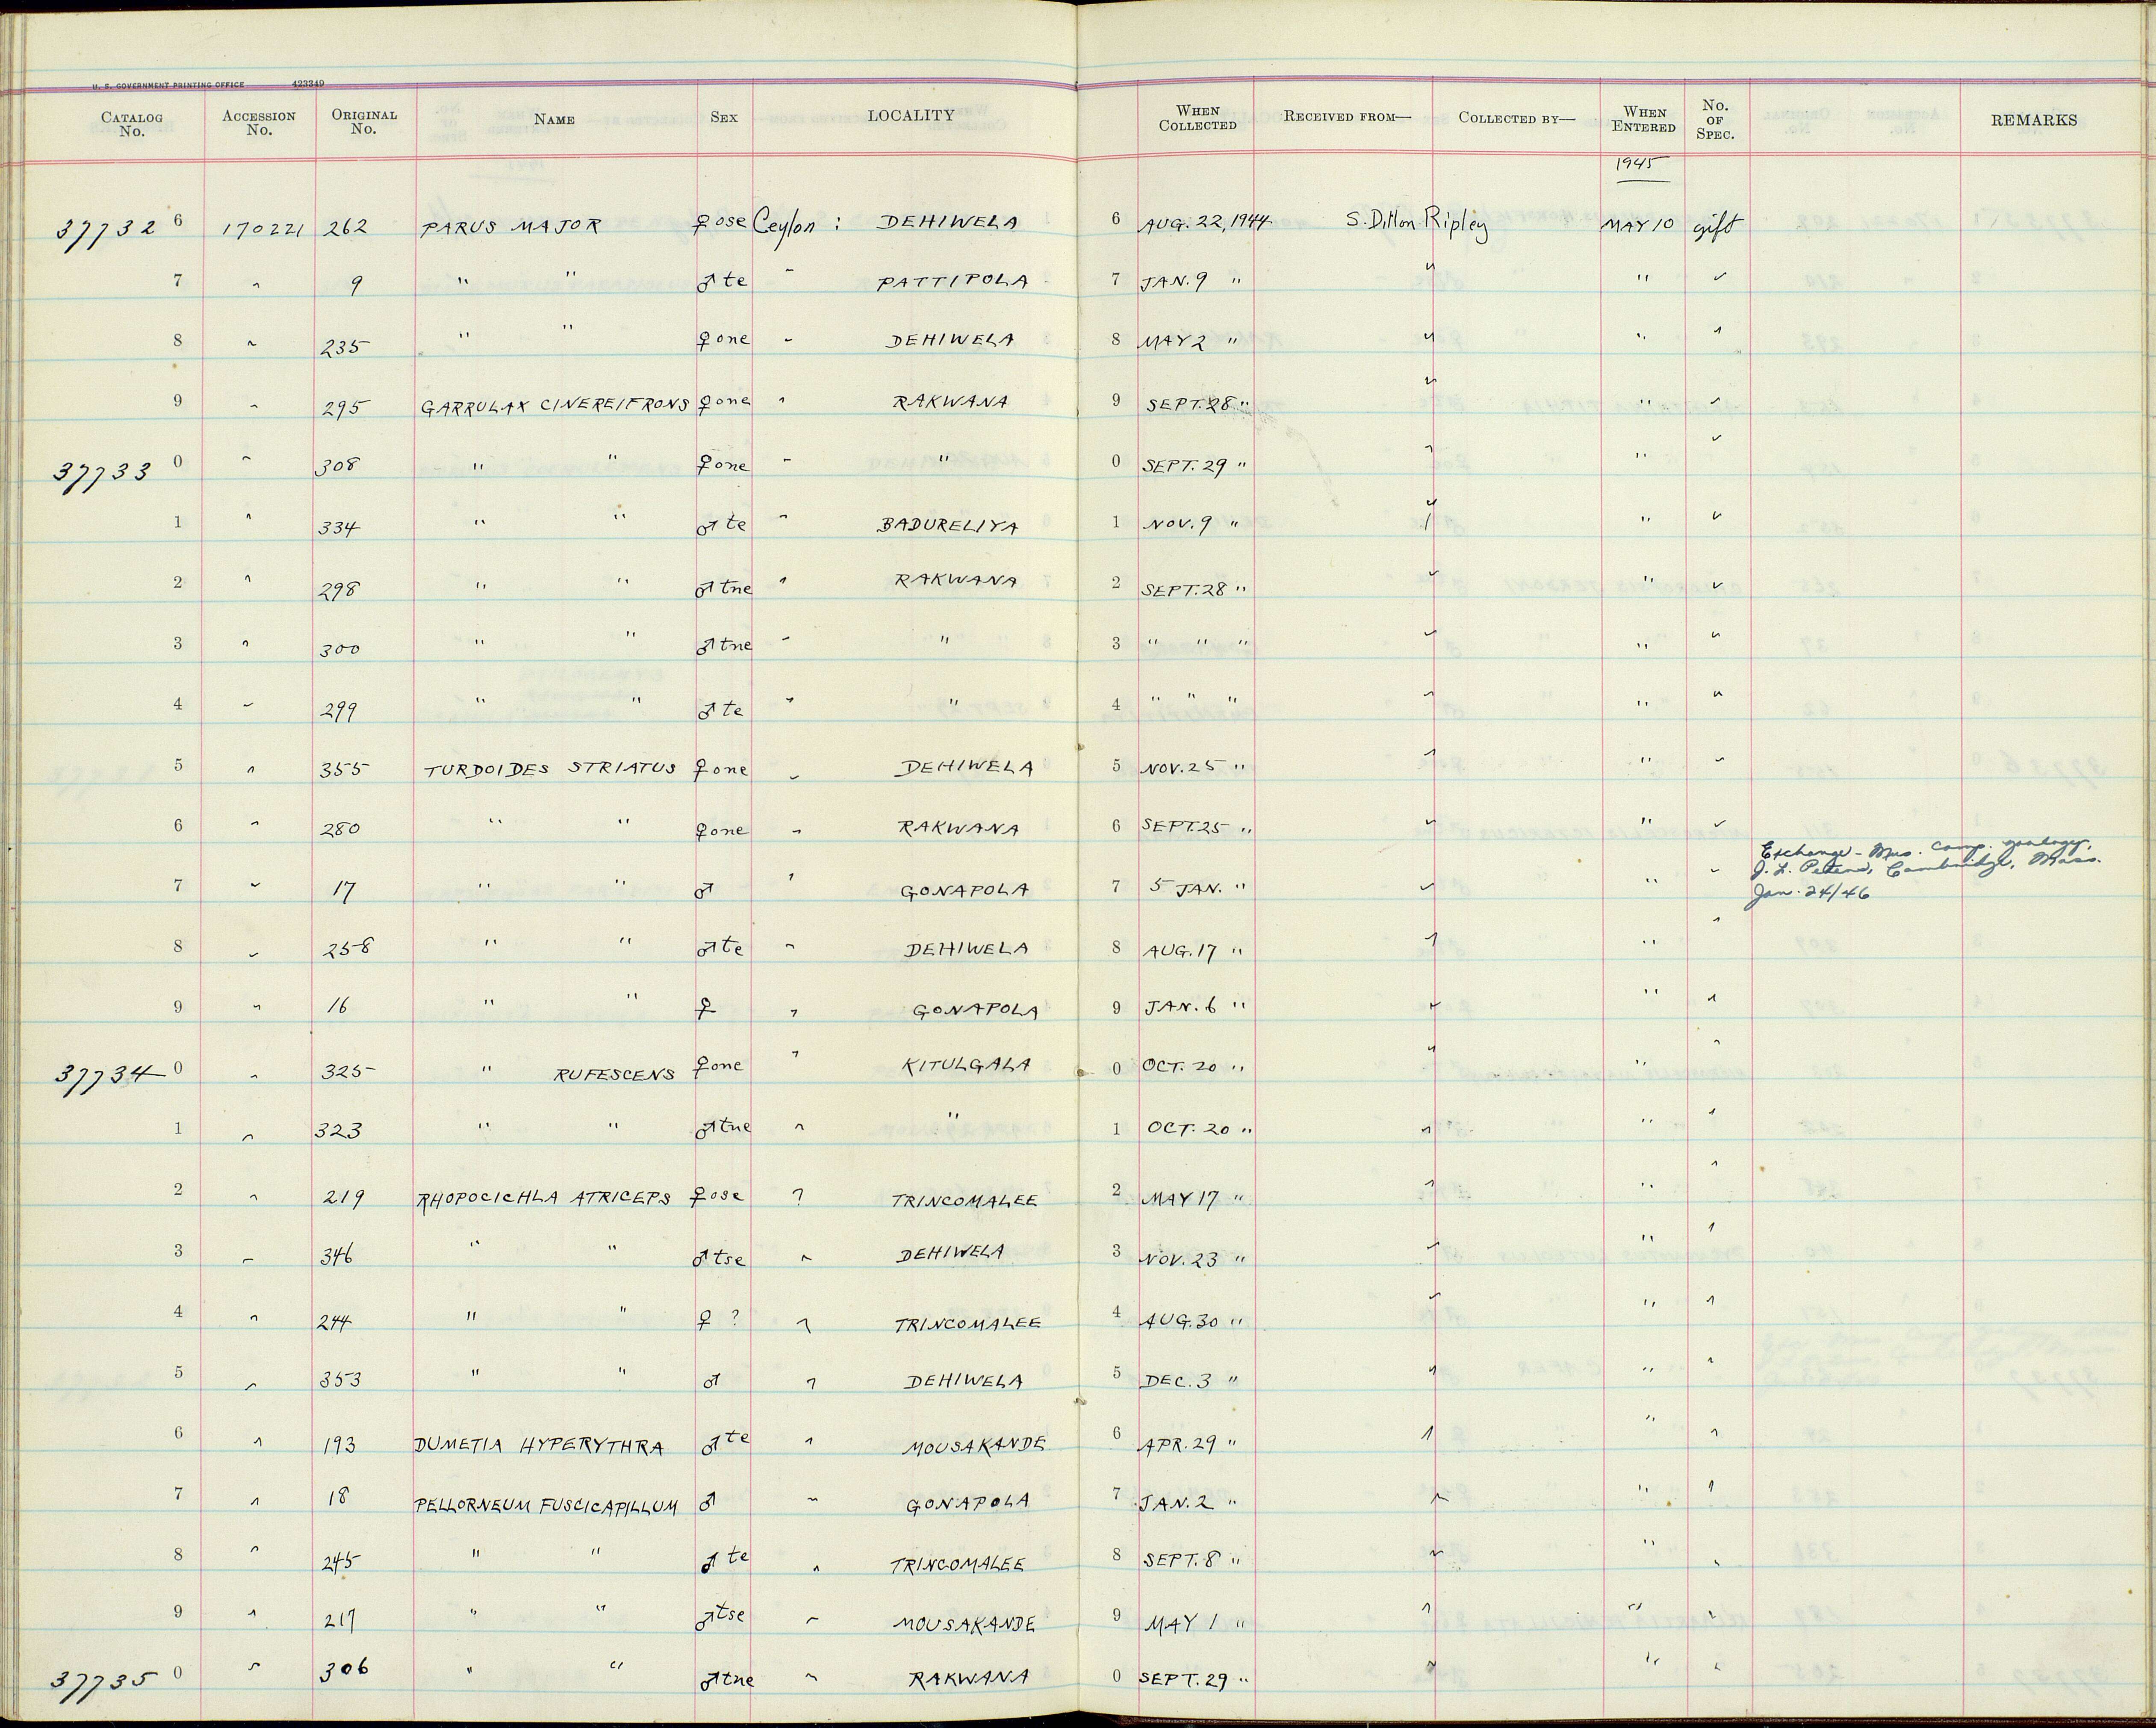 U. S. GOVERNMENT PRINTING OFFICE 423349
CATALOG No. ACCESSION No. ORIGINAL No. NAME SEX LOCALITY WHEN COLLECTED RECEIVED FROM— COLLECTED BY— WHEN ENTERED No. OF SPEC. REMARKS
1945
37732 6 170221 262 PARUS MAJOR ♀ ose Ceylon : DEHIWELA 6 AUG. 22, 1944 S. Dillon Ripley MAY 10 gift
7 " 9 " " ♂ te " PATTIPOLA 7 JAN. 9 " " " "
8 " 235 " " ♀ one " DEHIWELA 8 MAY 2 " " " "
9 " 295 GARRULAX CINEREIFRONS ♀ one " RAKWANA 9 SEPT. 28 " " " "
37733 0 " 308 " " ♀ one " " 0 SEPT. 29 " " " "
1 " 334 " " ♂ te " BADURELIYA 1 NOV. 9 " " " "
2 " 298 " " ♂ tne " RAKWANA 2 SEPT. 28 " " " "
3 " 300 " " ♂ tne " " 3 " " " " " "
4 " 299 " " ♂ te " " 4 " " " " " "
5 " 355 TURDOIDES STRIATUS ♀ one " DEHIWELA 5 NOV. 25 " " " "
6 " 280 " " ♀ one " RAKWANA 6 SEPT. 25 " " " "
7 " 17 " " ♂ " GONAPOLA 7 5 JAN. " " " " Exchange - Mus. Comp. Zoology,
J. L. Peters, Cambridge, Mass.
Jan. 24/46
8 " 258 " " ♂ te " DEHIWELA 8 AUG. 17 " " " "
9 " 16 " " ♀ " GONAPOLA 9 JAN. 6 " " " "
37734 0 " 325 " RUFESCENS ♀ one " KITULGALA 0 OCT. 20 " " " "
1 " 323 " " ♂ tne " " 1 OCT. 20 " " " "
2 " 219 RHOPOCICHLA ATRICEPS ♀ ose " TRINCOMALEE 2 MAY 17 " " " "
3 " 346 " " ♂ tse " DEHIWELA 3 NOV. 23 " " " "
4 " 244 " " ♀ ? " TRINCOMALEE 4 AUG. 30 " " " "
5 " 353 " " ♂ " DEHIWELA 5 DEC. 3 " " " "
6 " 193 DUMETIA HYPERYTHRA ♂ te " MOUSAKANDE 6 APR. 29 " " " "
7 " 18 PELLORNEUM FUSCICAPILLUM ♂ " GONAPOLA 7 JAN. 2 " " " "
8 " 245 " " ♂ te " TRINCOMALEE 8 SEPT. 8 " " " "
9 " 217 " " ♂ tse " MOUSAKANDE 9 MAY 1 " " " "
37735 0 " 306 " " ♂ tne " RAKWANA 0 SEPT. 29 " " " "